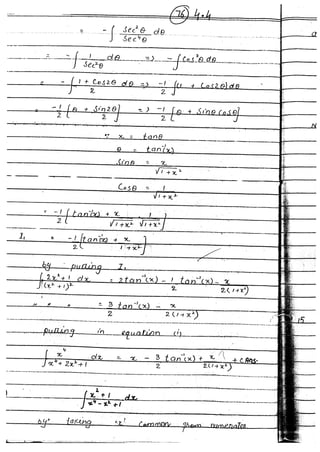 76 4.4
= - ∫ Sec²θ/Sec⁴θ dθ
= - ∫ 1/Sec²θ dθ => - ∫ Cos²θ dθ
= - ∫ 1 + Cos2θ/2 dθ => -1/2 ∫(1 + Cos2θ) dθ
= -1/2 [θ + Sin2θ/2] => -1/2 [θ + Sinθ Cosθ]
∵ x = tanθ
θ = tan⁻¹(x)
Sinθ = x/√1+x²
Cosθ = 1/√1+x²
= -1/2 [tan⁻¹(x) + x/√1+x² · 1/√1+x²]
I₁ = -1/2 [tan⁻¹(x) + x/1+x²]
by putting I₁
∫ 2x²+1/(x²+1)² dx = 2tan⁻¹(x) - 1/2 tan⁻¹(x) - x/2(1+x²)
= 3/2 tan⁻¹(x) - x/2(1+x²)
putting in equation (i)
∫ x⁴/x⁴+2x²+1 dx = x - 3/2 tan⁻¹(x) + x/2(1+x²) + C Ans.
∫ x²+1/x⁴-x²+1 dx
by taking 'x²' Common from numerator
15